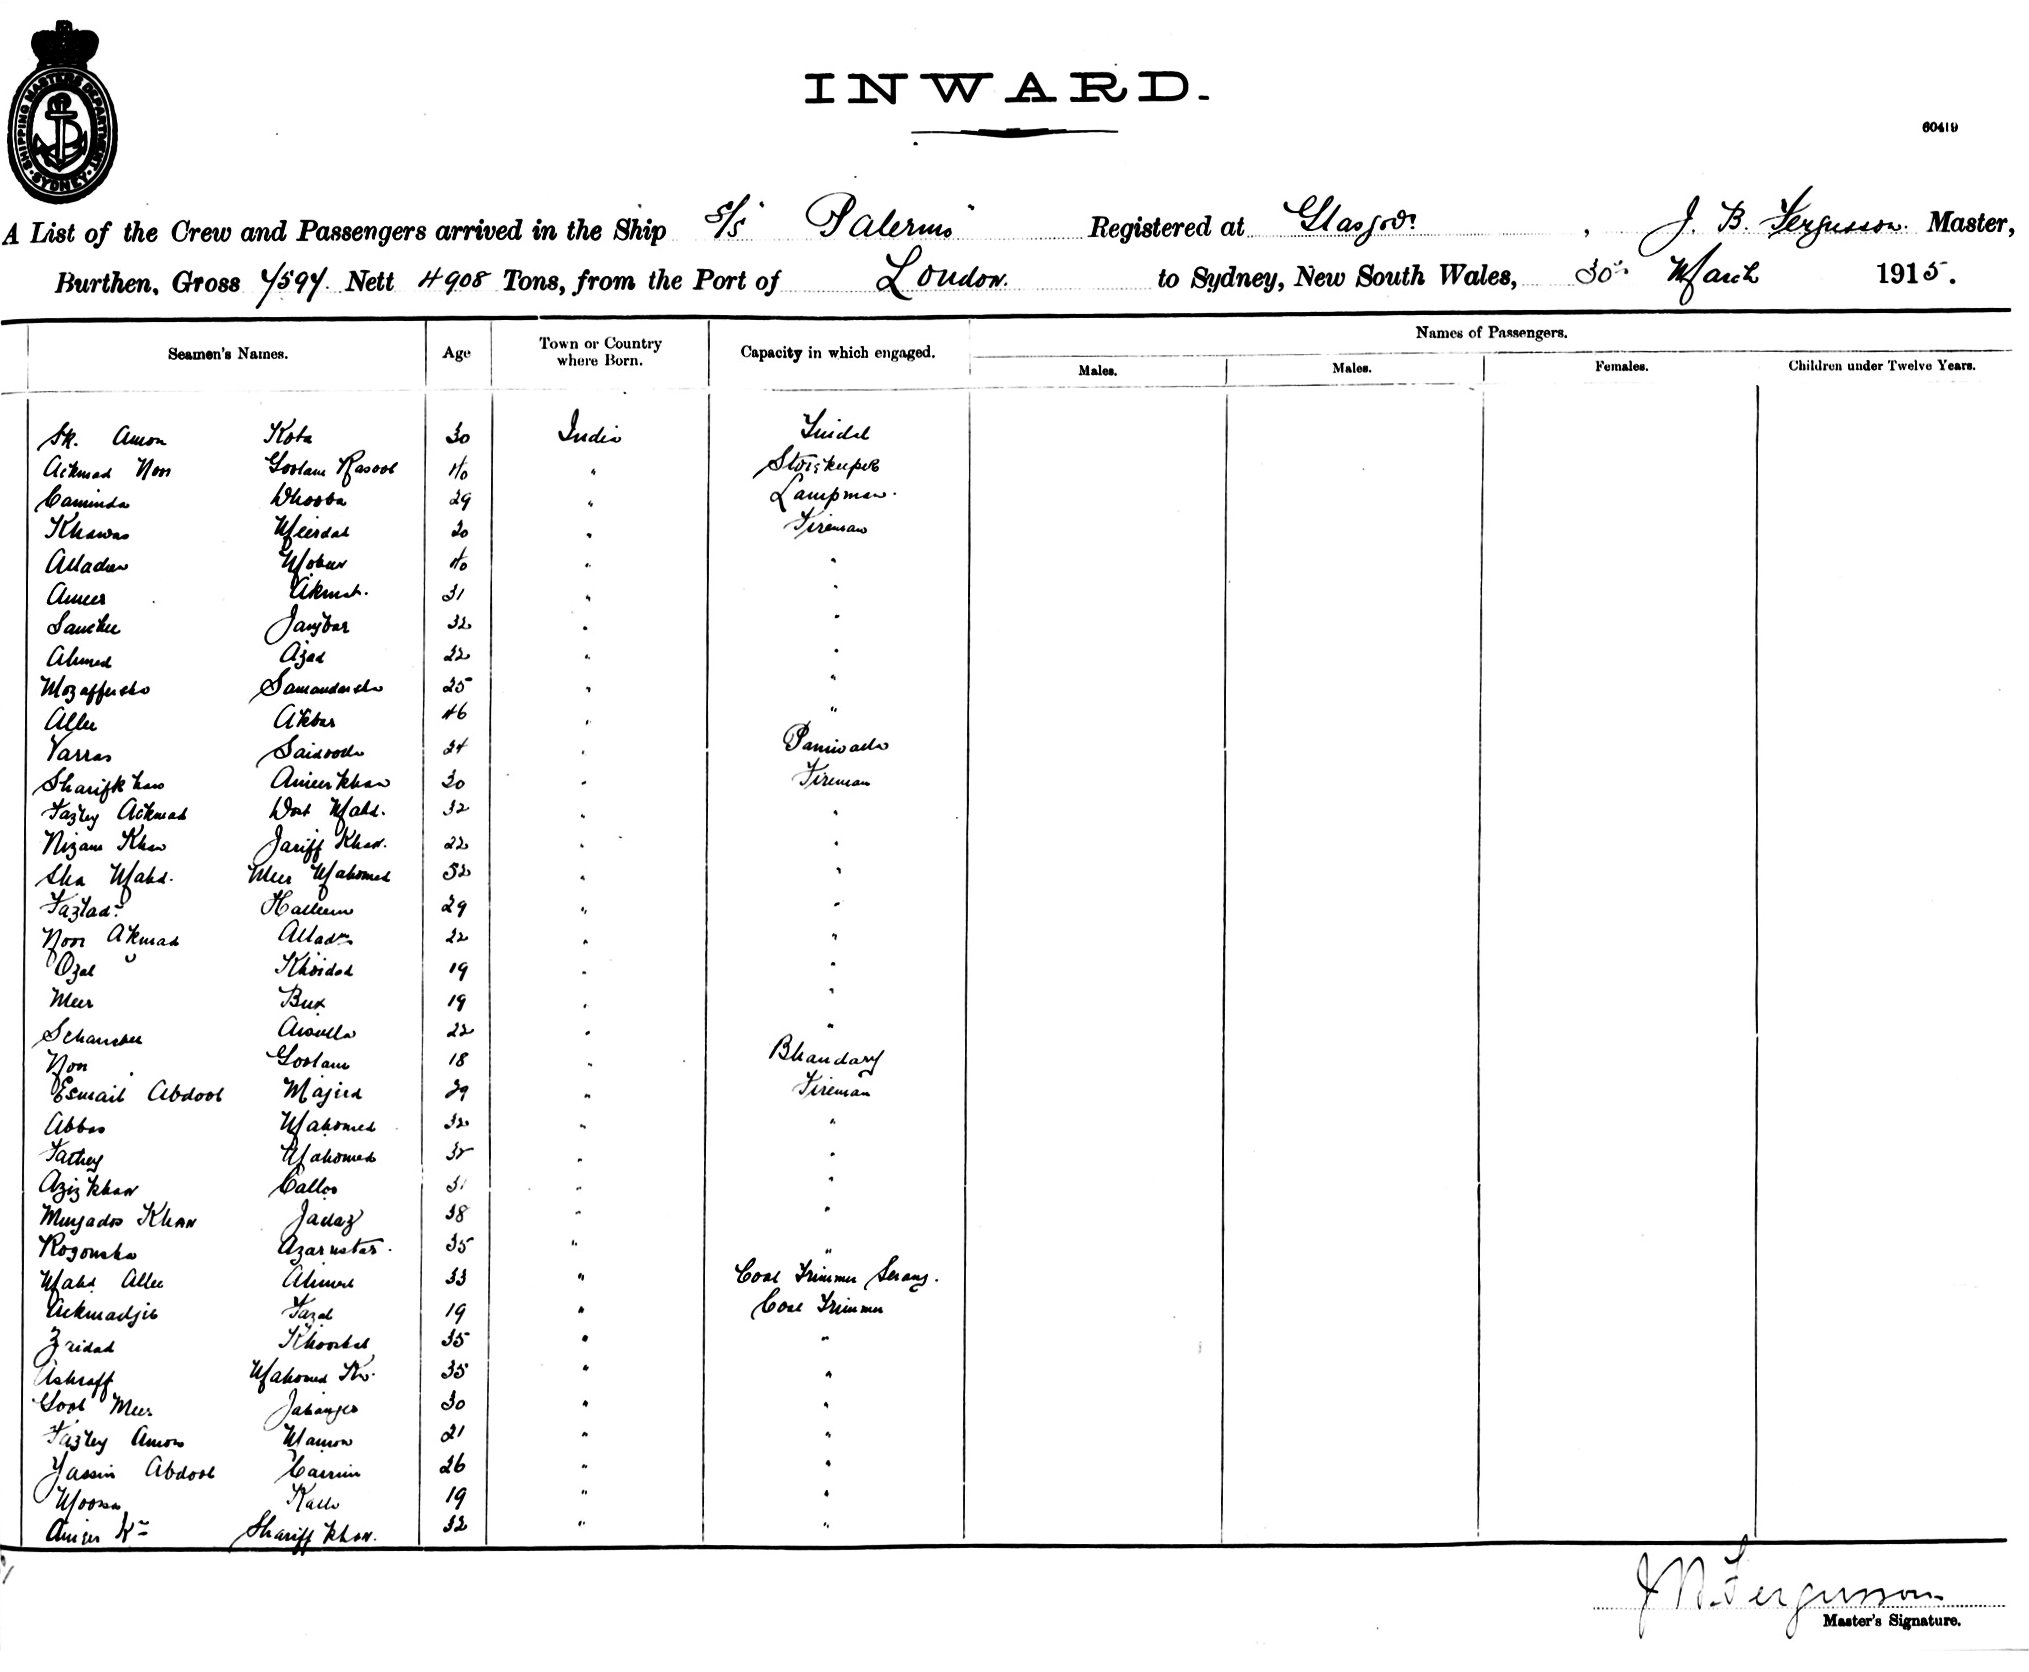 SHIPPING MASTERS DEPARTMENT
SYDNEY
INWARD.
60419
A List of the Crew and Passengers arrived in the Ship S/S Palermo Registered at Glasgow, J. B. Fergusson. Master,
Burthen, Gross 7597. Nett 4908 Tons, from the Port of London. to Sydney, New South Wales, 30 March 1915.
Names of Passengers.
Seamen's Names. Age Town or Country where Born. Capacity in which engaged. Males. Males. Females. Children under Twelve Years.
Sk. Amon Kota 30 India Tindal
Ackmad Noor Goolam Rasool 40 " Storekeeper
Caminda Whooba 29 " Lampman.
Khawas Meerdad 30 " Fireman
Alladin Mobun 40 " "
Ameer Akmat. 31 " "
Sanchee Janjbar 32 " "
Ahmed Azad 22 " "
Mozaffersha Samandersha 25 " "
Allee Akbar 46 " "
Varras 34 " Paniwalla
Sharifkhan Ameerkhan 30 " Fireman
Fazley Ackmad Dost Mahd. 32 " "
Nizam Khan Jariff Khan. 22 " "
Sha Mahd. Meer Mahomed 52 " "
Fazlad Halleem 29 " "
Noor Akmad Allad 22 " "
Ozal Khoidad 19 " "
Meer Bux 19 " "
22 " "
Noor Goolam 18 " Bhandary
Esmail Abdool Majied 29 " Fireman
Abbas Mahomed 32 " "
Fathey Mahomed 32 " "
Azizkhan Calloo 31 " "
Khan 38 " "
35 " "
Mahd Allee Ahmed 33 " Coal Trimmer Serang.
Ackmadjie Fazal 19 " Coal Trimmer
Zridad 35 " "
Ashraff Mahomed Kn. 35 " "
Gool Meer 30 " "
Fazley Amon Mamon 21 " "
Yassin Abdool Carrim 26 " "
Moosa Kallo 19 " "
Kn Shariff Khan. 32 " "
J B Fergusson
Master's Signature.